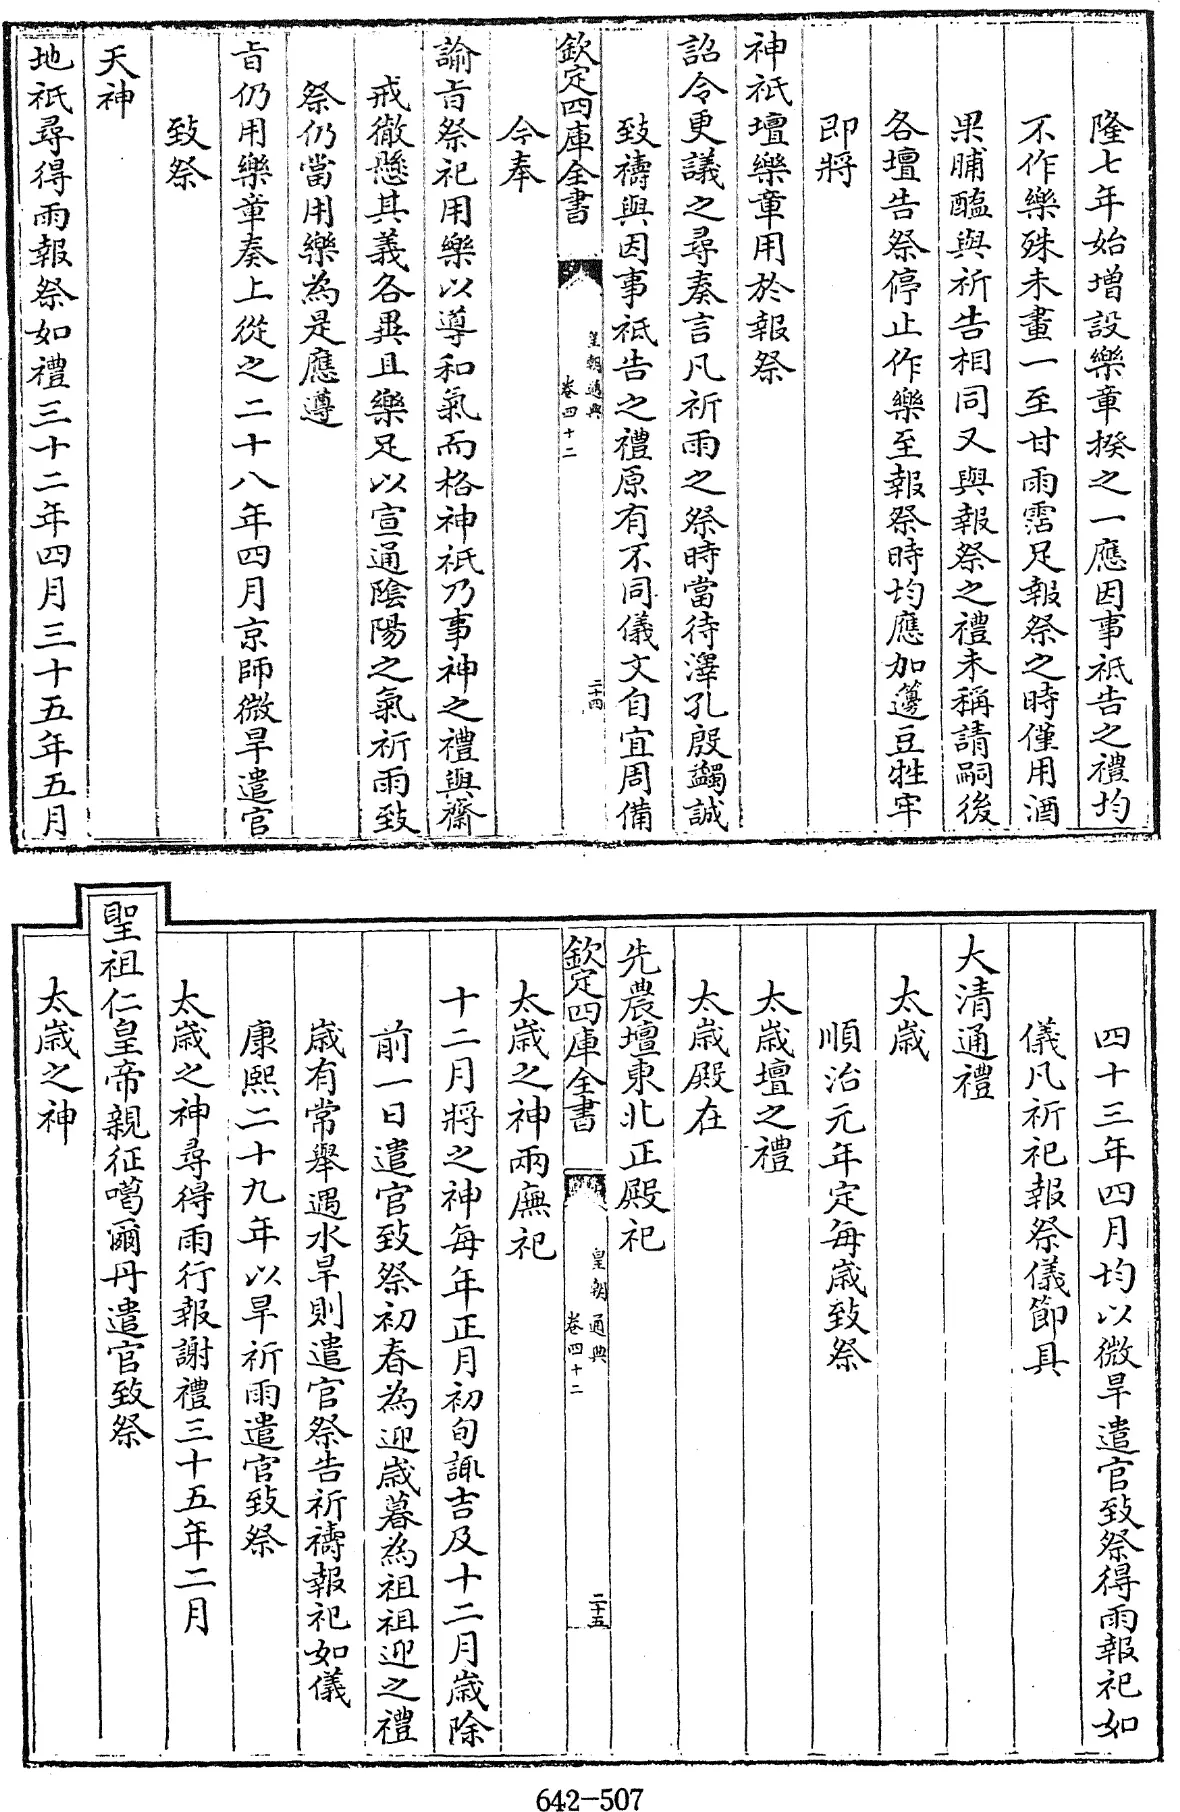 隆七年始增設樂章揆之一應因事祗告之禮均
不作樂殊未畫一至甘雨霑足報祭之時僅用酒
果脯醢與祈告相同又與報祭之禮未稱請嗣後
各壇告祭停止作樂至報祭時均應加籩豆牲牢
即將
神祇壇樂章用於報祭
詔令更議之尋奏言凡祈雨之祭時當待澤孔殷蠲誠
致禱與因事祗告之禮原有不同儀文自宜周備
欽定四庫全書
皇朝通典
卷四十二
二十四
今奉
諭旨祭祀用樂以導和氣而格神祇乃事神之禮與齋
戒徹懸其義各異且樂足以宣通陰陽之氣祈雨致
祭仍當用樂為是應遵
旨仍用樂章奏上從之二十八年四月京師微旱遣官
致祭
天神
地祇尋得雨報祭如禮三十二年四月三十五年五月
四十三年四月均以微旱遣官致祭得雨報祀如
儀凡祈祀報祭儀節具
大清通禮
太歲
順治元年定每歲致祭
太歲壇之禮
太歲殿在
先農壇東北正殿祀
欽定四庫全書
皇朝通典
卷四十二
二十五
太歲之神兩廡祀
十二月將之神每年正月初旬諏吉及十二月歲除
前一日遣官致祭初春為迎歲暮為祖祖迎之禮
歲有常舉遇水旱則遣官祭告祈禱報祀如儀
康熙二十九年以旱祈雨遣官致祭
太歲之神尋得雨行報謝禮三十五年二月
聖祖仁皇帝親征噶爾丹遣官致祭
太歲之神
642-507